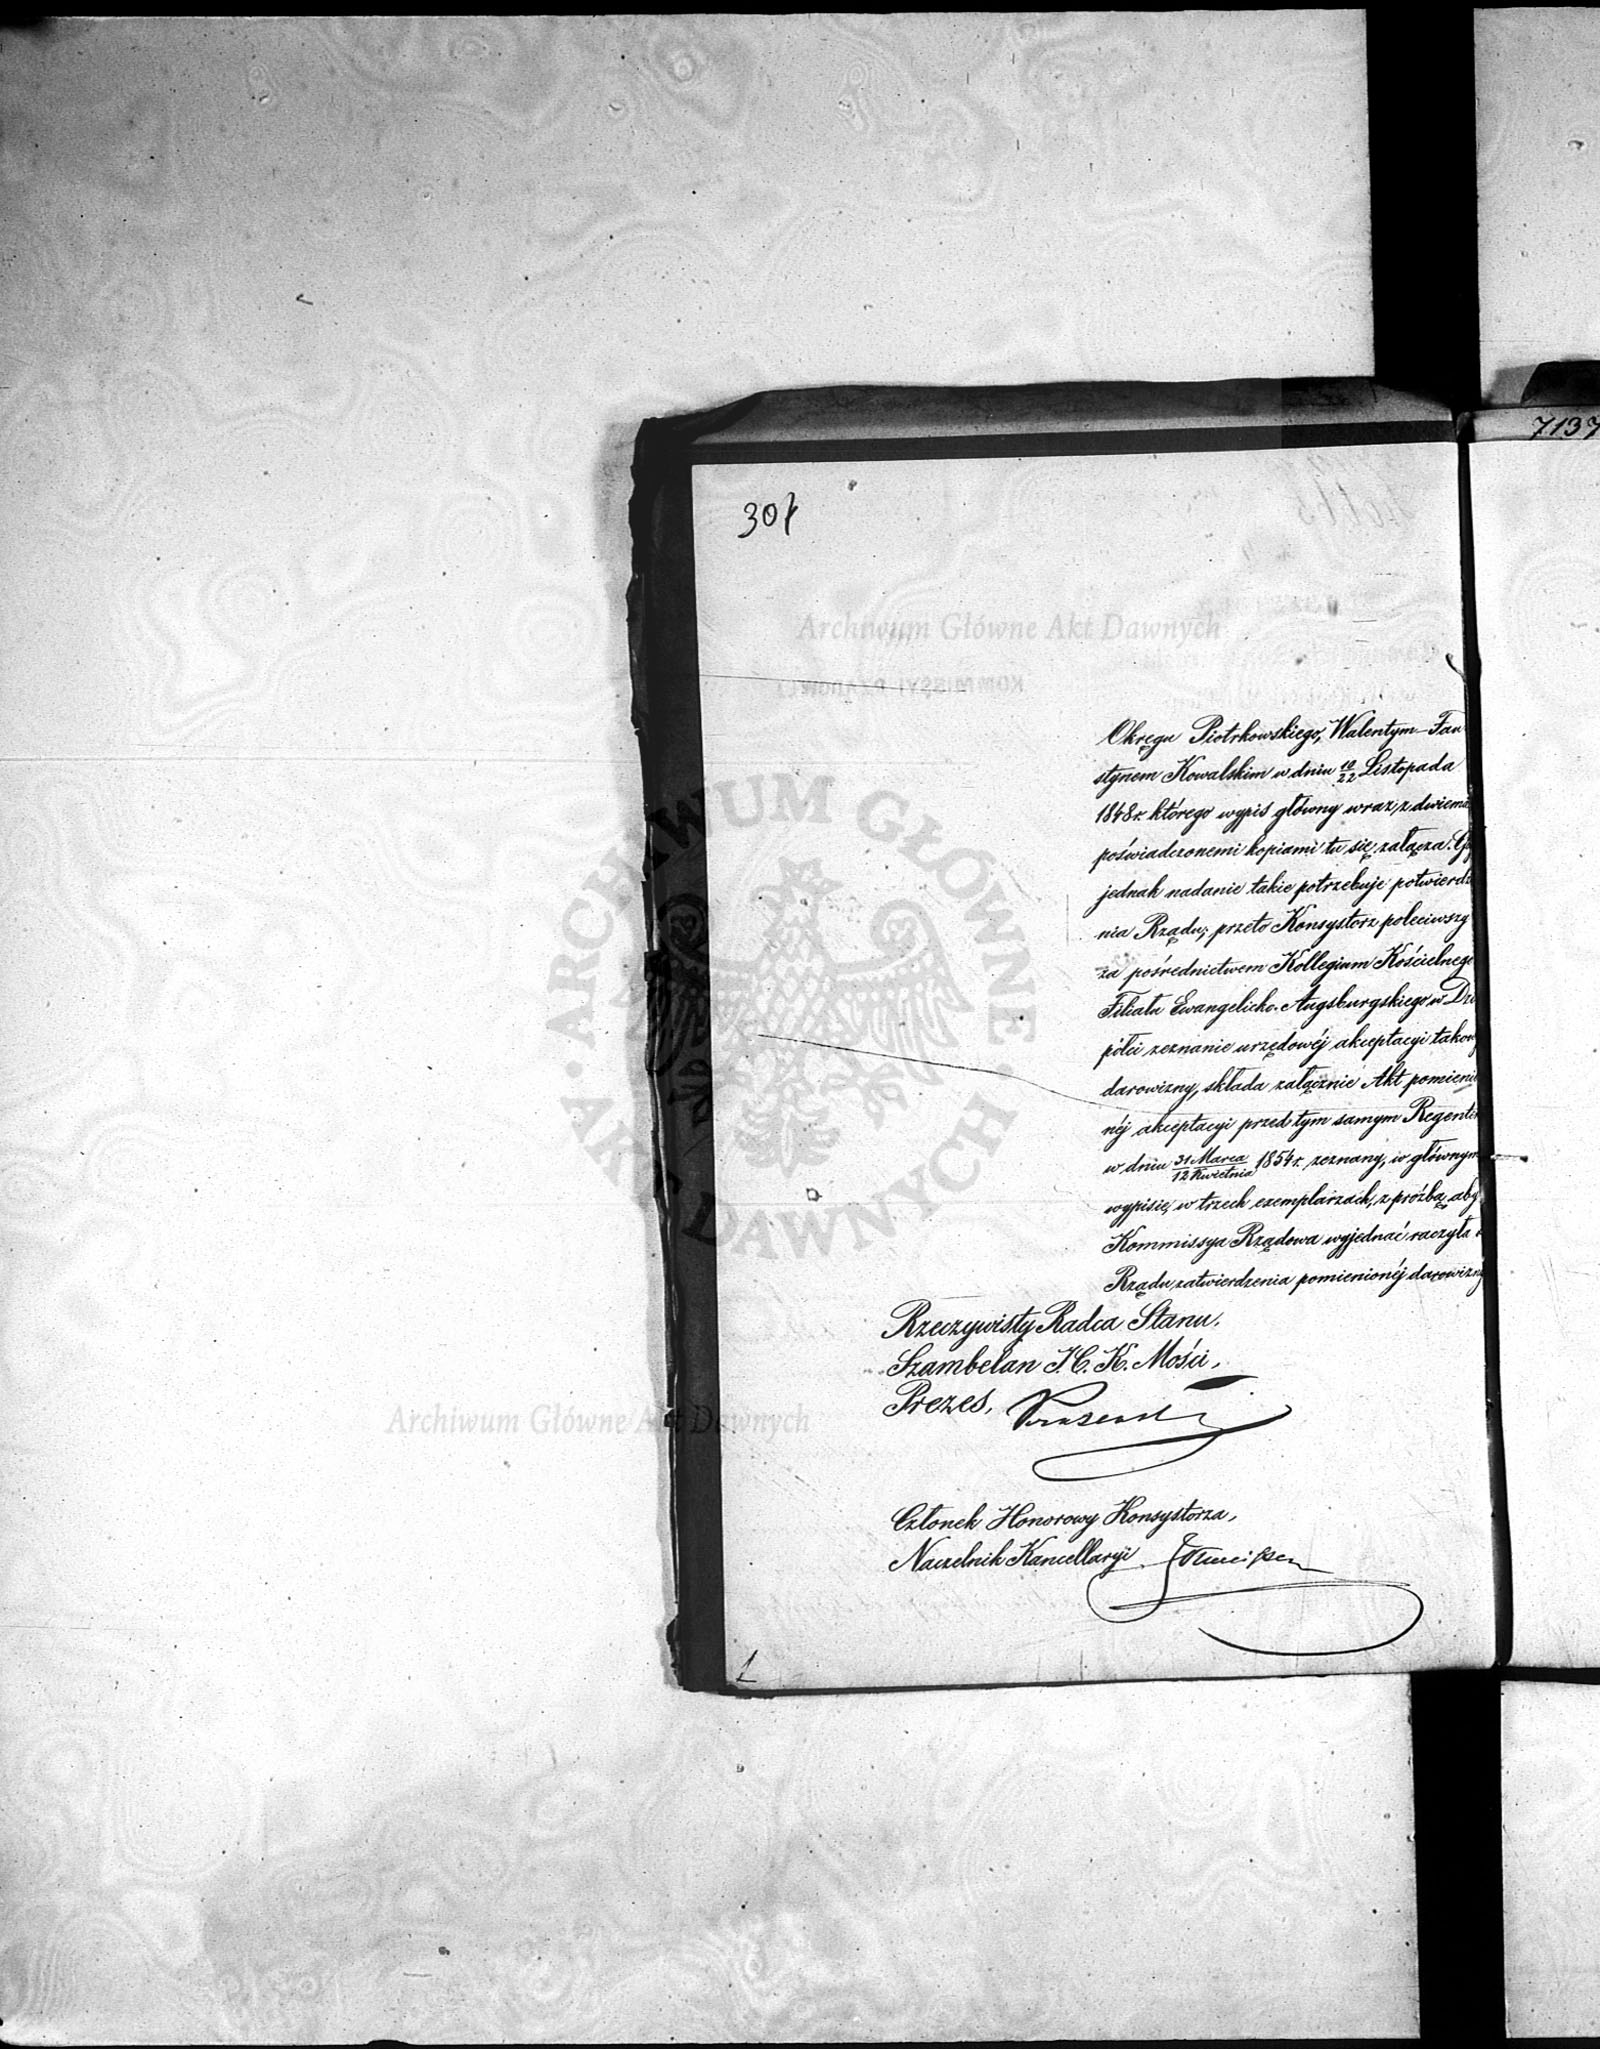 7137
307
Archiwum Główne Akt Dawnych
Okręgu Piotrkowskiego, Walentym Fau
stynem Kowalskim w dniu 10/22 Listopada
1848 r. którego wypis główny wraz z dwiema
poświadczonemi kopiami tu się załącza. Gdy
jednak nadanie takie potrzebuje potwierdze
nia Rządu; przeto Konsystorz poleciwszy
za pośrednictwem Kollegium Kościelnego
Filiału Ewangelicko-Augsburgskiego w Dzie
pólci zeznanie urzędowéj akceptacyi takowéj
darowizny, składa załącznie Akt pomienio
néj akceptacyi przed tym samym Regentem
w dniu 31 Marca/12 Kwietnia 1854 r. zeznany, w głównym
wypisie, w trzech exemplarzach, z prośbą, aby
Kommissya Rządowa wyjednać raczyła u
Rządu zatwierdzenia pomienionéj darowizny
Rzeczywisty Radca Stanu,
Szambelan J. C. K. Mości,
Prezes,
Archiwum Główne Akt Dawnych
Członek Honorowy Konsystorza,
Naczelnik Kancellaryi
1
ARCHIWUM GŁÓWNE AKT DAWNYCH